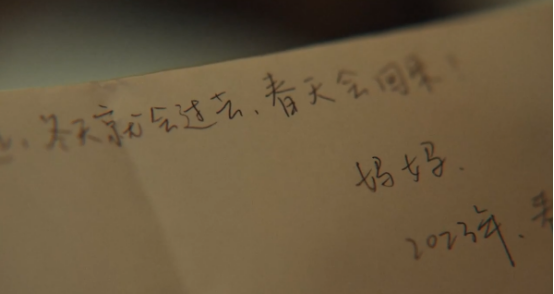 冬天就会过去、春天会回来！
妈妈.
2023年、春